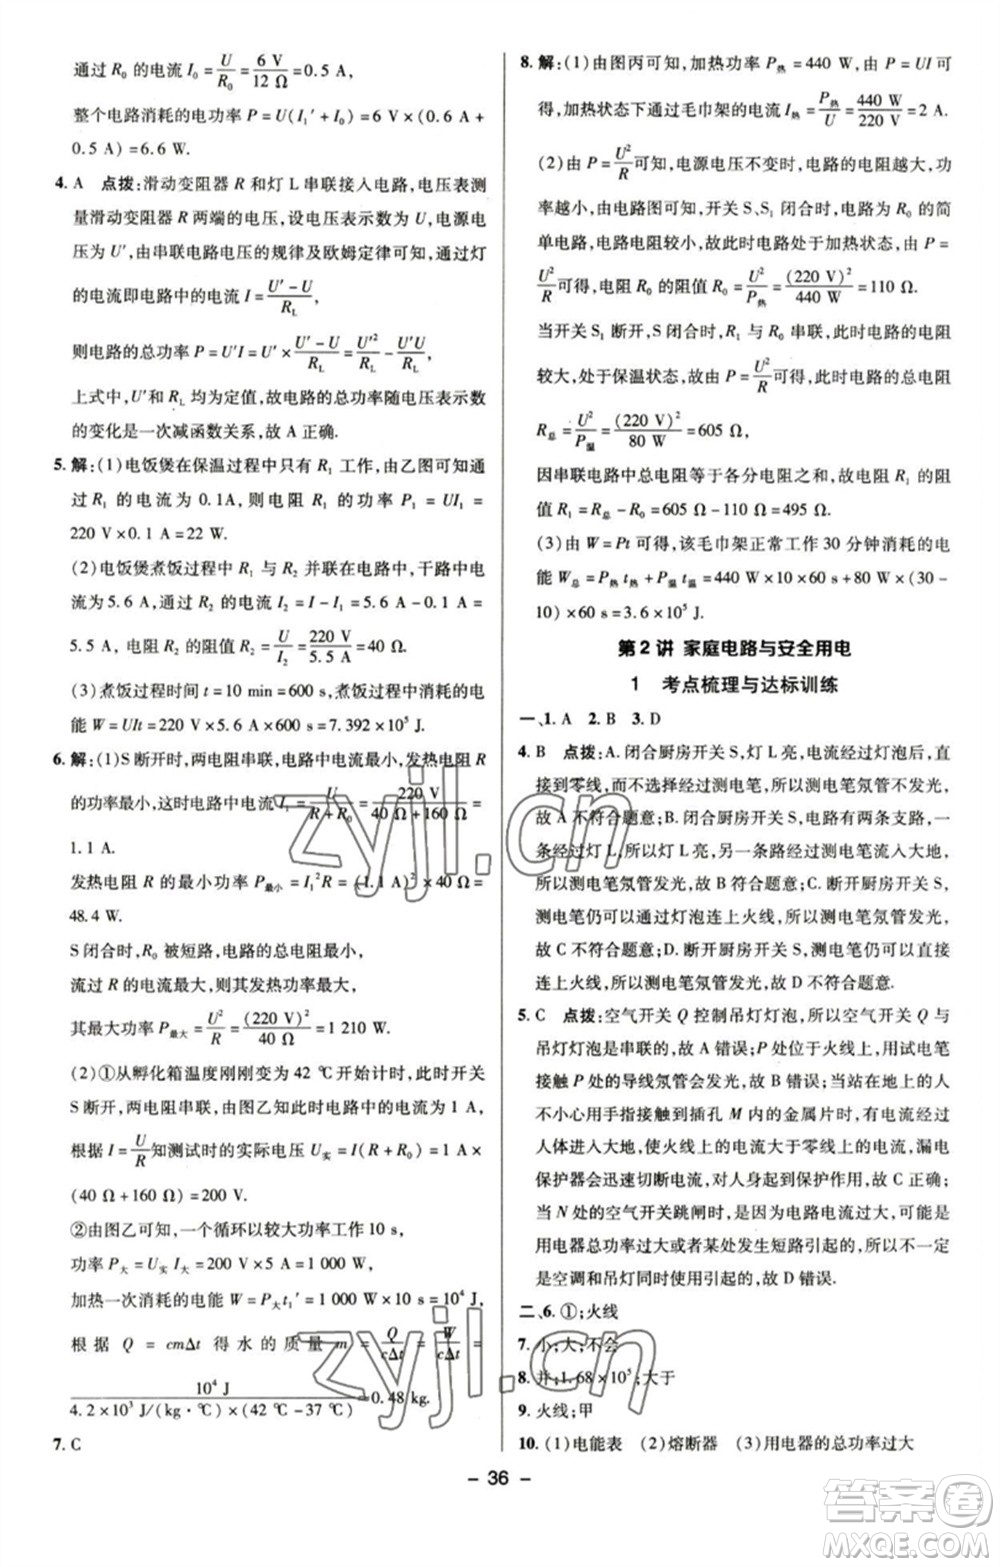 通过 R₀ 的电流 I₀ = U/R₀ = 6 V/12 Ω = 0.5 A,
整个电路消耗的电功率 P = U(I₁′ + I₀) = 6 V×(0.6 A +
0.5 A) = 6.6 W.
4. A 点拨:滑动变阻器 R 和灯 L 串联接入电路,电压表测
量滑动变阻器 R 两端的电压,设电压表示数为 U,电源电
压为 U′,由串联电路电压的规律及欧姆定律可知,通过灯
的电流即电路中的电流 I = (U′ − U)/R_L,
则电路的总功率 P = U′I = U′ × (U′ − U)/R_L = U′²/R_L − U′U/R_L,
上式中,U′和 R_L 均为定值,故电路的总功率随电压表示数
的变化是一次减函数关系,故 A 正确.
5. 解:(1)电饭煲在保温过程中只有 R₁ 工作,由乙图可知通
过 R₁ 的电流为 0.1A,则电阻 R₁ 的功率 P₁ = UI₁ =
220 V×0.1 A = 22 W.
(2)电饭煲煮饭过程中 R₁ 与 R₂ 并联在电路中,干路中电
流为5.6 A,通过 R₂ 的电流 I₂ = I − I₁ = 5.6 A − 0.1 A =
5.5 A,电阻 R₂ 的阻值 R₂ = U/I₂ = 220 V/5.5 A = 40 Ω.
(3)煮饭过程时间 t = 10 min = 600 s,煮饭过程中消耗的电
能 W = UIt = 220 V×5.6 A×600 s = 7.392×10⁵ J.
6. 解:(1)S 断开时,两电阻串联,电路中电流最小,发热电阻 R
的功率最小,这时电路中电流 I₁ = U/(R + R₀) = 220 V/(40 Ω + 160 Ω) =
1.1 A.
发热电阻 R 的最小功率 P最小 = I₁²R = (1.1 A)²×40 Ω =
48.4 W.
S 闭合时,R₀ 被短路,电路的总电阻最小,
流过 R 的电流最大,则其发热功率最大,
其最大功率 P最大 = U²/R = (220 V)²/40 Ω = 1 210 W.
(2)①从孵化箱温度刚刚变为 42 ℃开始计时,此时开关
S 断开,两电阻串联,由图乙知此时电路中的电流为 1 A,
根据 I = U/R知测试时的实际电压 U实 = I(R + R₀) = 1 A×
(40 Ω + 160 Ω) = 200 V.
②由图乙可知,一个循环以较大功率工作 10 s,
功率 P大 = U实I大 = 200 V×5 A = 1 000 W,
加热一次消耗的电能 W = P大t₁′ = 1 000 W×10 s = 10⁴ J,
根据 Q = cmΔt 得水的质量 m = Q/cΔt = W/cΔt =
10⁴ J/[4.2×10³ J/(kg·℃)×(42 ℃ − 37 ℃)] = 0.48 kg.
7. C
8. 解:(1)由图丙可知,加热功率 P热 = 440 W,由 P = UI可
得,加热状态下通过毛巾架的电流 I热 = P热/U = 440 W/220 V = 2 A.
(2)由 P = U²/R可知,电源电压不变时,电路的电阻越大,功
率越小,由电路图可知,开关 S、S₁ 闭合时,电路为 R₀ 的简
单电路,电路电阻较小,故此时处于加热状态,由 P =
U²/R可得,电阻 R₀ 的阻值 R₀ = U²/P热 = (220 V)²/440 W = 110 Ω.
当开关 S₁ 断开,S 闭合时,R₁ 与 R₀ 串联,此时电路的电阻
较大,处于保温状态,故由 P = U²/R可得,此时电路的总电阻
R总 = U²/P温 = (220 V)²/80 W = 605 Ω,
因串联电路中总电阻等于各分电阻之和,故电阻 R₁ 的阻
值 R₁ = R总 − R₀ = 605 Ω − 110 Ω = 495 Ω.
(3)由 W = Pt 可得,该毛巾架正常工作 30 分钟消耗的电
能 W总 = P热t热 + P温t温 = 440 W×10×60 s + 80 W×(30 −
10)×60 s = 3.6×10⁵ J.
第 2 讲 家庭电路与安全用电
1 考点梳理与达标训练
一、1. A 2. B 3. D
4. B 点拨:A. 闭合厨房开关 S,灯 L 亮,电流经过灯泡后直
接到零线,而不选择经过测电笔,所以测电笔氖管不发
光,故 A 不符合题意;B. 闭合厨房开关 S,电路有两条支路,一
条经过灯 L,所以灯 L 亮,另一条路经过人流入大地,
所以测电笔氖管发光,故 B 符合题意;C. 断开厨房开关 S,
测电笔仍可以通过灯泡接触火线,所以测电笔氖管发光,
故 C 不符合题意;D. 断开厨房开关 S,测电笔仍可以直接
连上火线,所以测电笔氖管发光,故 D 不符合题意.
5. C 点拨:空气开关 Q 控制吊灯灯泡,所以空气开关 Q 与
吊灯灯泡是串联的,故 A 错误;P 处位于火线上,用试电笔
接触 P 处的导线氖管会发光,故 B 错误;当站在地上的人
不小心用手指接触到插孔 M 内的金属片时,有电流经过
人体进入大地,使火线上的电流大于零线上的电流,漏电
保护器会迅速切断电流,对人身起到保护作用,故 C 正确;
当 N处的空气开关跳闸可能是因为电路电流过大,可能是
用电器总功率过大或者某处发生短路引起的,所以不一定
是空调和吊灯同时使用引起的,故 D 错误.
二、6. ①;火线
7. 小;大;不会
8. 并;1.68×10⁵;大于
9. 火线;甲
10. (1)电能表 (2)熔断器 (3)用电器的总功率过大
- 36 -
zyjl.cn
zyjl.cn
答案圈
MXQE.COM